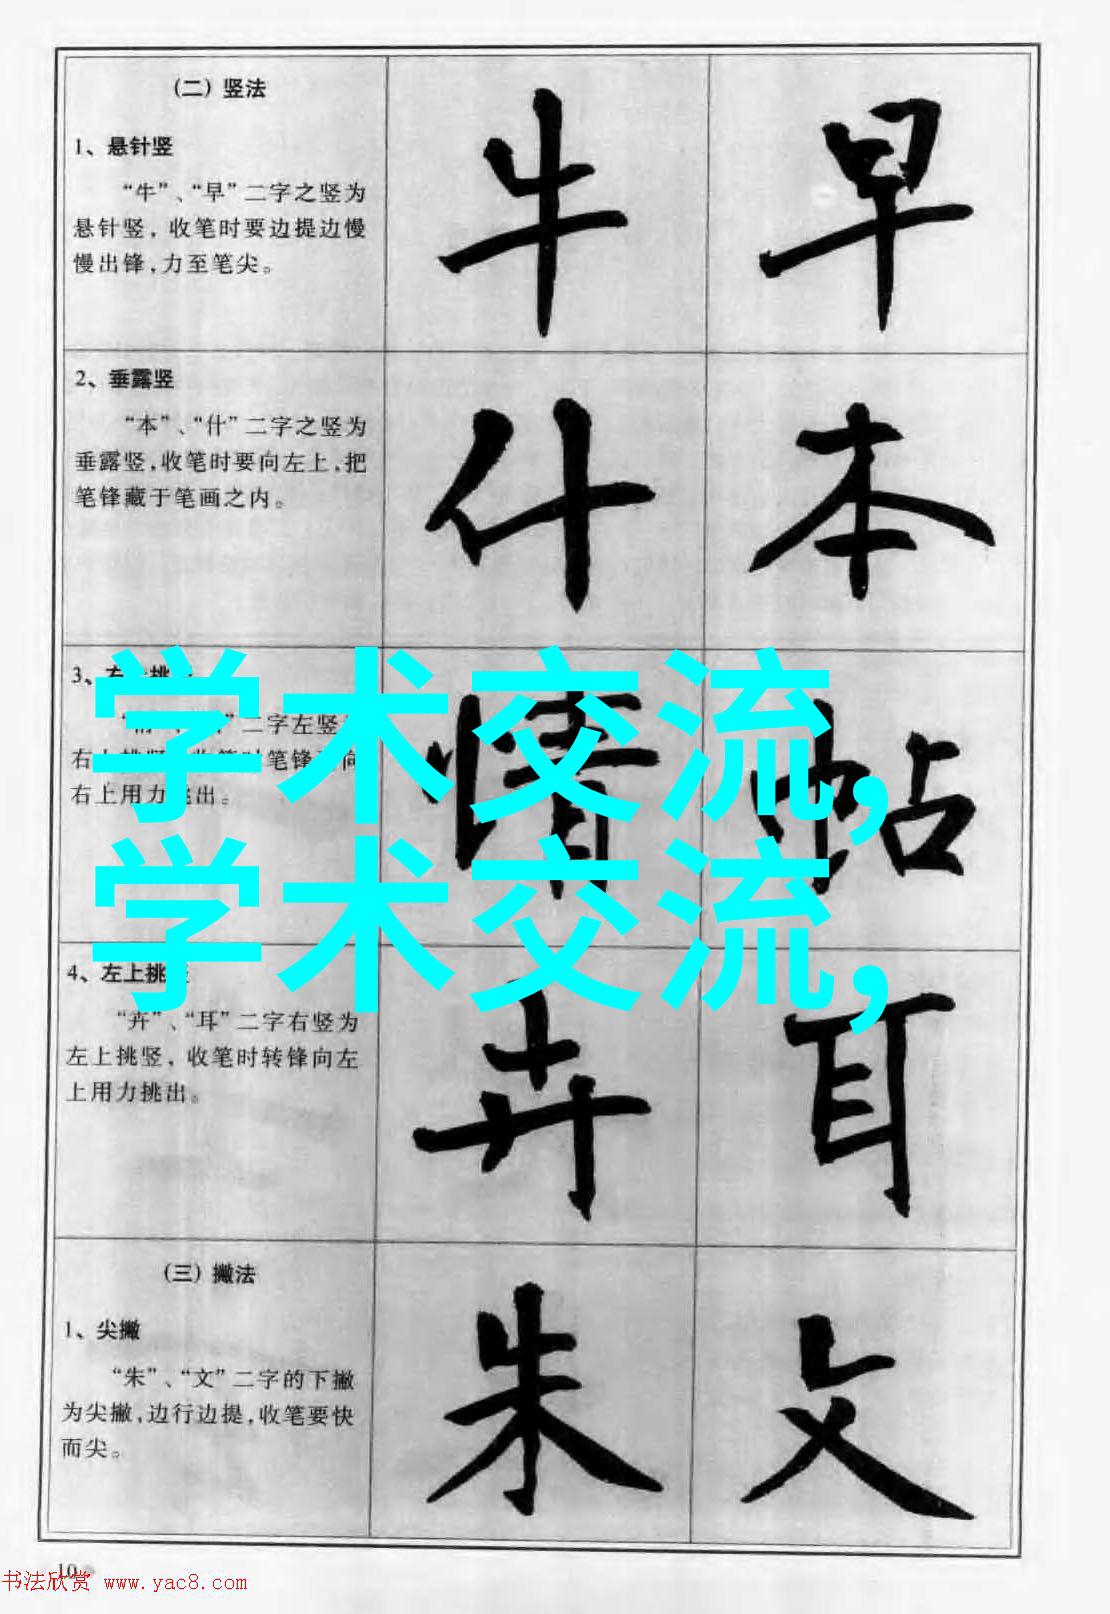 （二）竖法
1、悬针竖
“牛”、“早”二字之竖为
悬针竖，收笔时要边提边慢
慢出锋，力至笔尖。
牛 早
2、垂露竖
“本”、“什”二字之竖为
垂露竖，收笔时要向左上，把
笔锋藏于笔画之内。
什 本
3、右
二字左竖
右 笔锋 向
右上用力挑出。
情 帖
学术交流，
学术交流，
4、左上挑
“卉”、“耳”二字右竖为
左上挑竖，收笔时转锋向左
上用力挑出。
卉 耳
（三）撇法
1、尖撇
“朱”、“文”二字的下撇
为尖撇，边行边提，收笔要快
而尖。
朱 文
10
书法欣赏 www.yac8.com